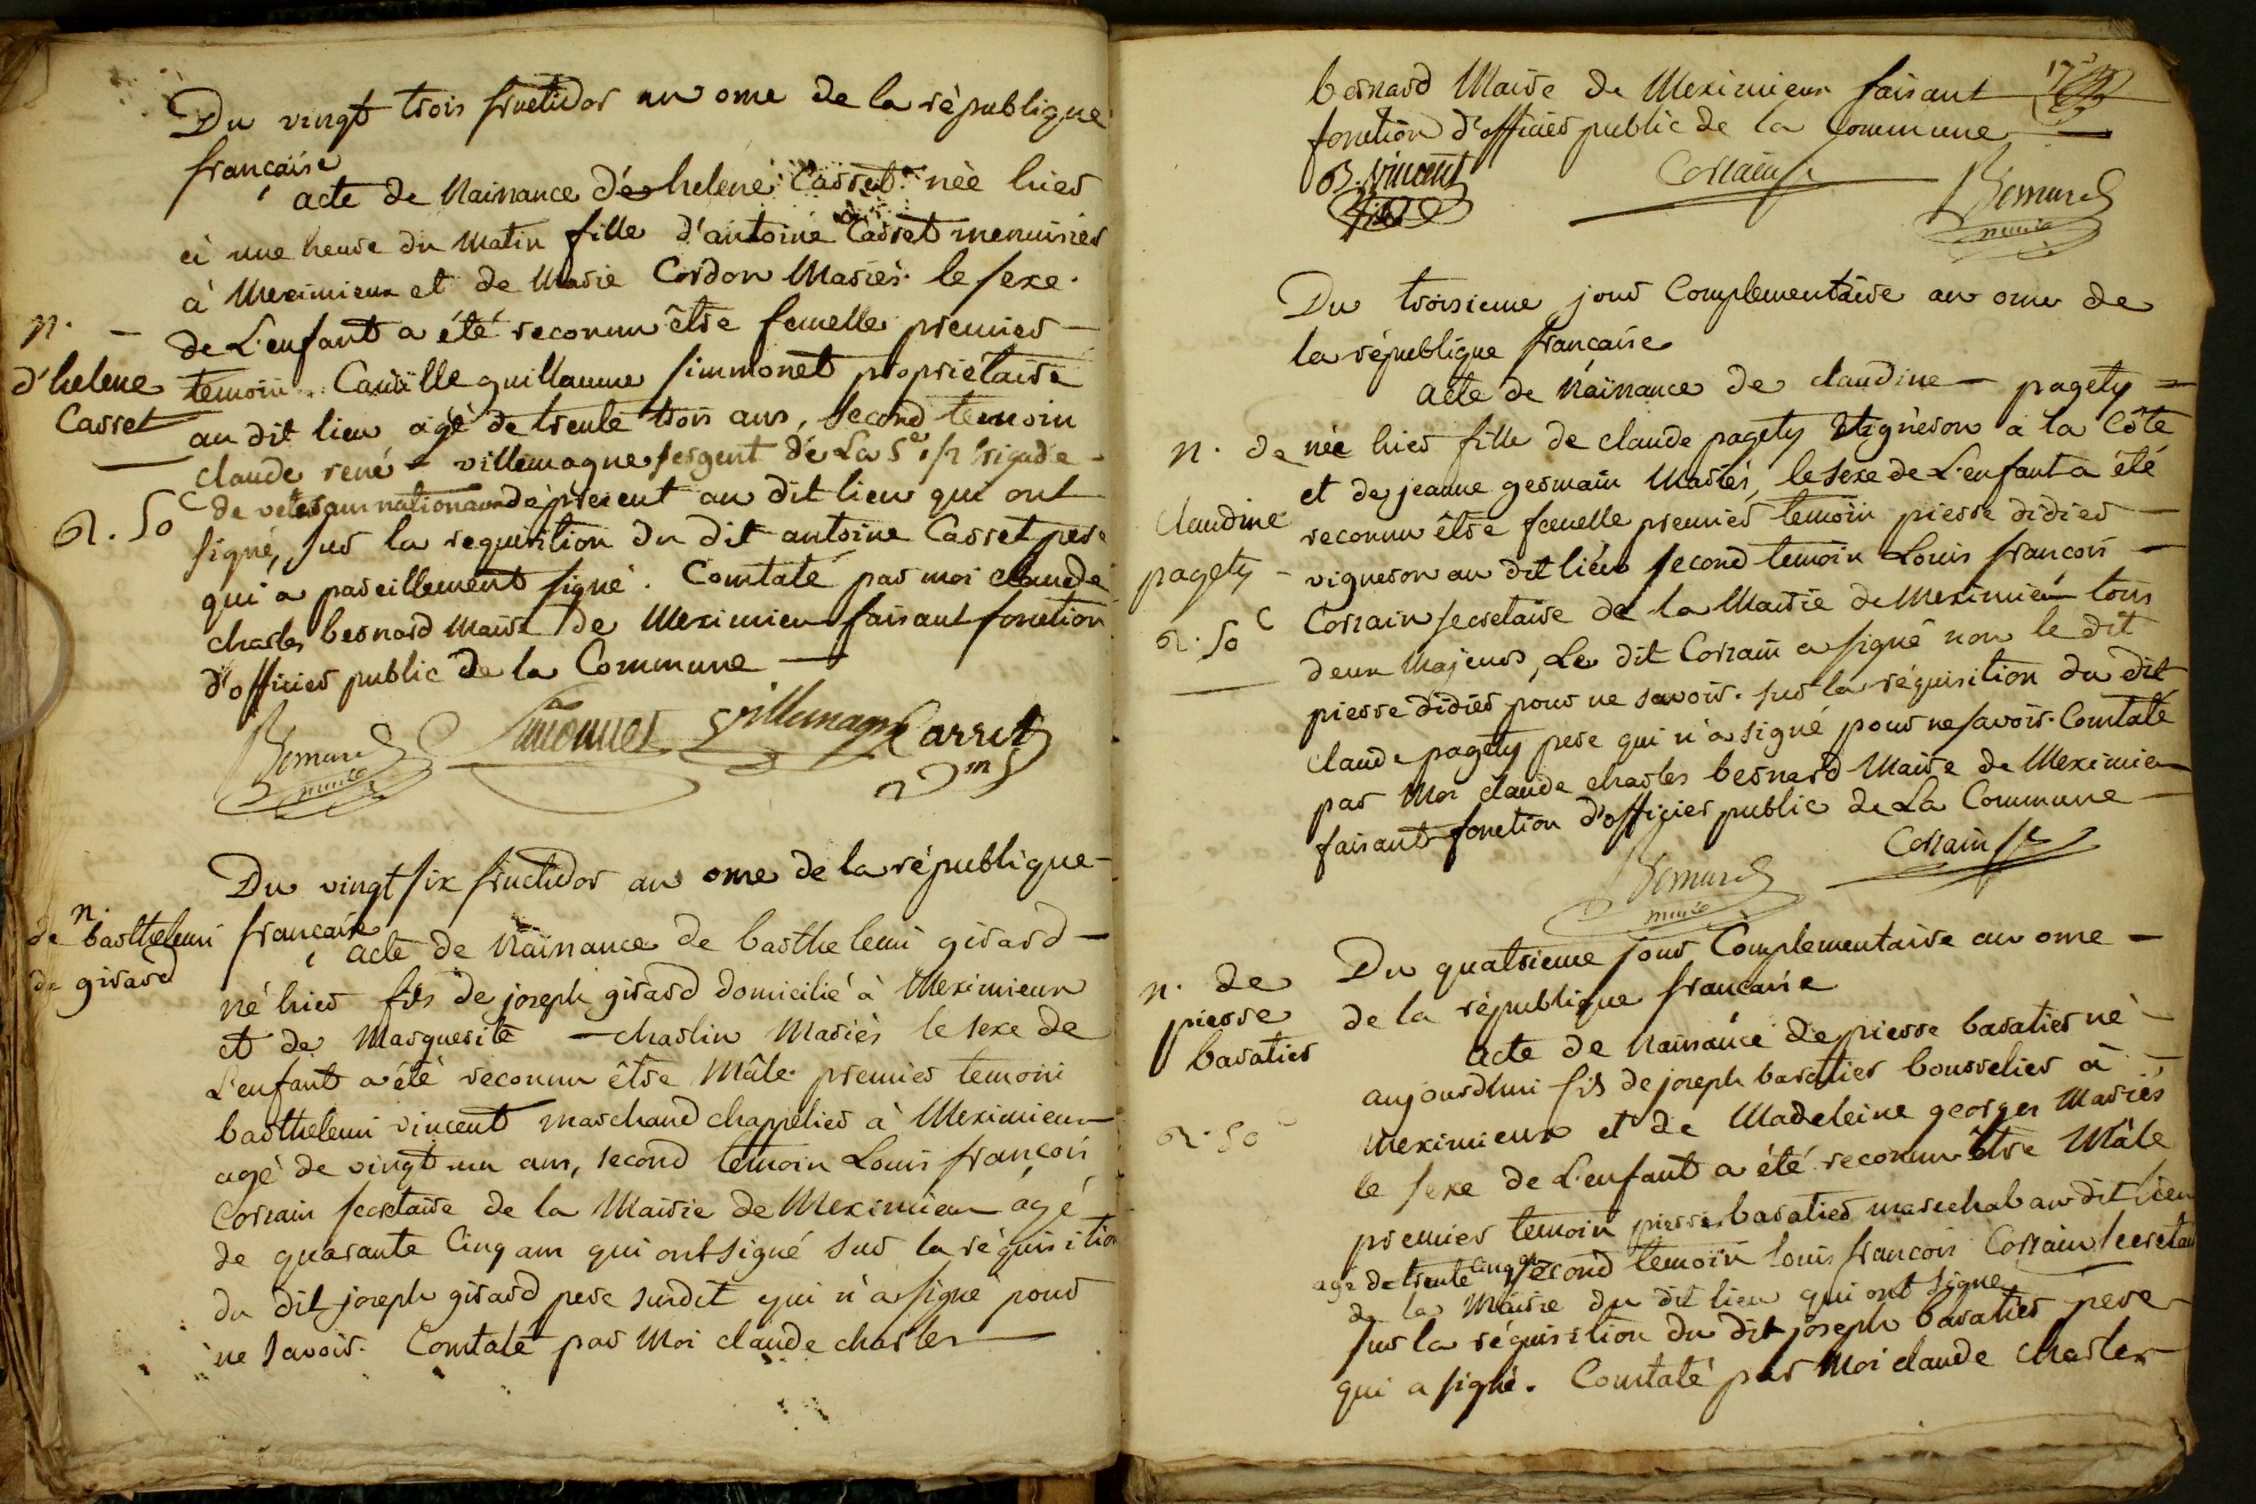 Du vingt trois fructidor an onze de la république
française
acte de Naissance de helene Carret née hier
à une heure du Matin fille d'antoine Carret menuisier
à Meximieux et de Marie Cordon Mariés. le sexe.
de L'enfant a été reconnu être femelle premier —
temoin. Camille guillaume simmonet propriétaire
au dit lieu agé de trente trois ans, second temoin
claude rené = villemagne sergent de La 5e 1/2 brigade -
de veterans nationaux de présent au dit lieu qui ont
signé, sur la requisition du dit antoine Carret pere
qui a pareillement signé. Constaté par moi claude
charles bernard Maire de Meximieu faisant fonction
d'officier public de la Commune —
n. —
d'helene
Carret
R. 50 c
Bernard
maire
Simonnet
Villemagne
Carret
Du vingt six fructidor an onze de la république —
française
acte de Naissance de barthelemi girard —
né hier fils de joseph girard domicilié à Meximieux
et de Marguerite — charlin Mariés le sexe de
L'enfant a été reconnu être Mâle. premier temoin
barthelemi vincent marchand chappelier à Meximieux
agé de vingt un ans, second temoin Louis françois
Corrain secretaire de la Mairie de Meximieu agé
de quarante Cinq ans qui ont signé sur la réquisition
du dit joseph girard pere susdit qui n'a signé pour
ne savoir. Constaté par Moi claude charles —
n.
de barthelemi
girard
bernard Maire de Meximieux faisant —
fonction d'officier public de la Commune —
17
B. Vincent
fils
Corrain
Bernard
maire
Du troisieme jour Complementaire an onze de
la république française
acte de Naissance de claudine — pagety =
née hier fille de claude pagety Vigneron à la Côte
et de jeanne germain Mariés, le sexe de L'enfant a été
reconnu être femelle premier temoin pierre didier —
vigneron au dit lieu second temoin Louis françois —
Corrain secretaire de la Mairie de Meximieu tous
deux Majeurs, Le dit Corrain a signé non le dit
pierre didier pour ne savoir. sur la réquisition du dit
Claude pagety pere qui n'a signé pour ne savoir. Constaté
par Moi claude charles bernard Maire de Meximieu
faisant fonction d'officier public de La Commune —
n. de
Claudine
pagety —
R. 50 c
Bernard
maire
Corrain
Du quatrieme jour Complementaire an onze —
de la république française
acte de Naissance de pierre baratier né —
aujourdhui fils de joseph baratier bourrelier à —
Meximieux et de Madeleine georges Mariés
le sexe de L'enfant a été reconnu être Mâle
premier temoin pierre baratier marechal au dit lieu
agé de trente Cinq ans second temoin louis françois Corrain secretaire
de la Mairie du dit lieu qui ont signé
sur la réquisition du dit joseph baratier pere —
qui a signé. Constaté par Moi claude charles —
n. de
pierre
baratier
R. 50 c